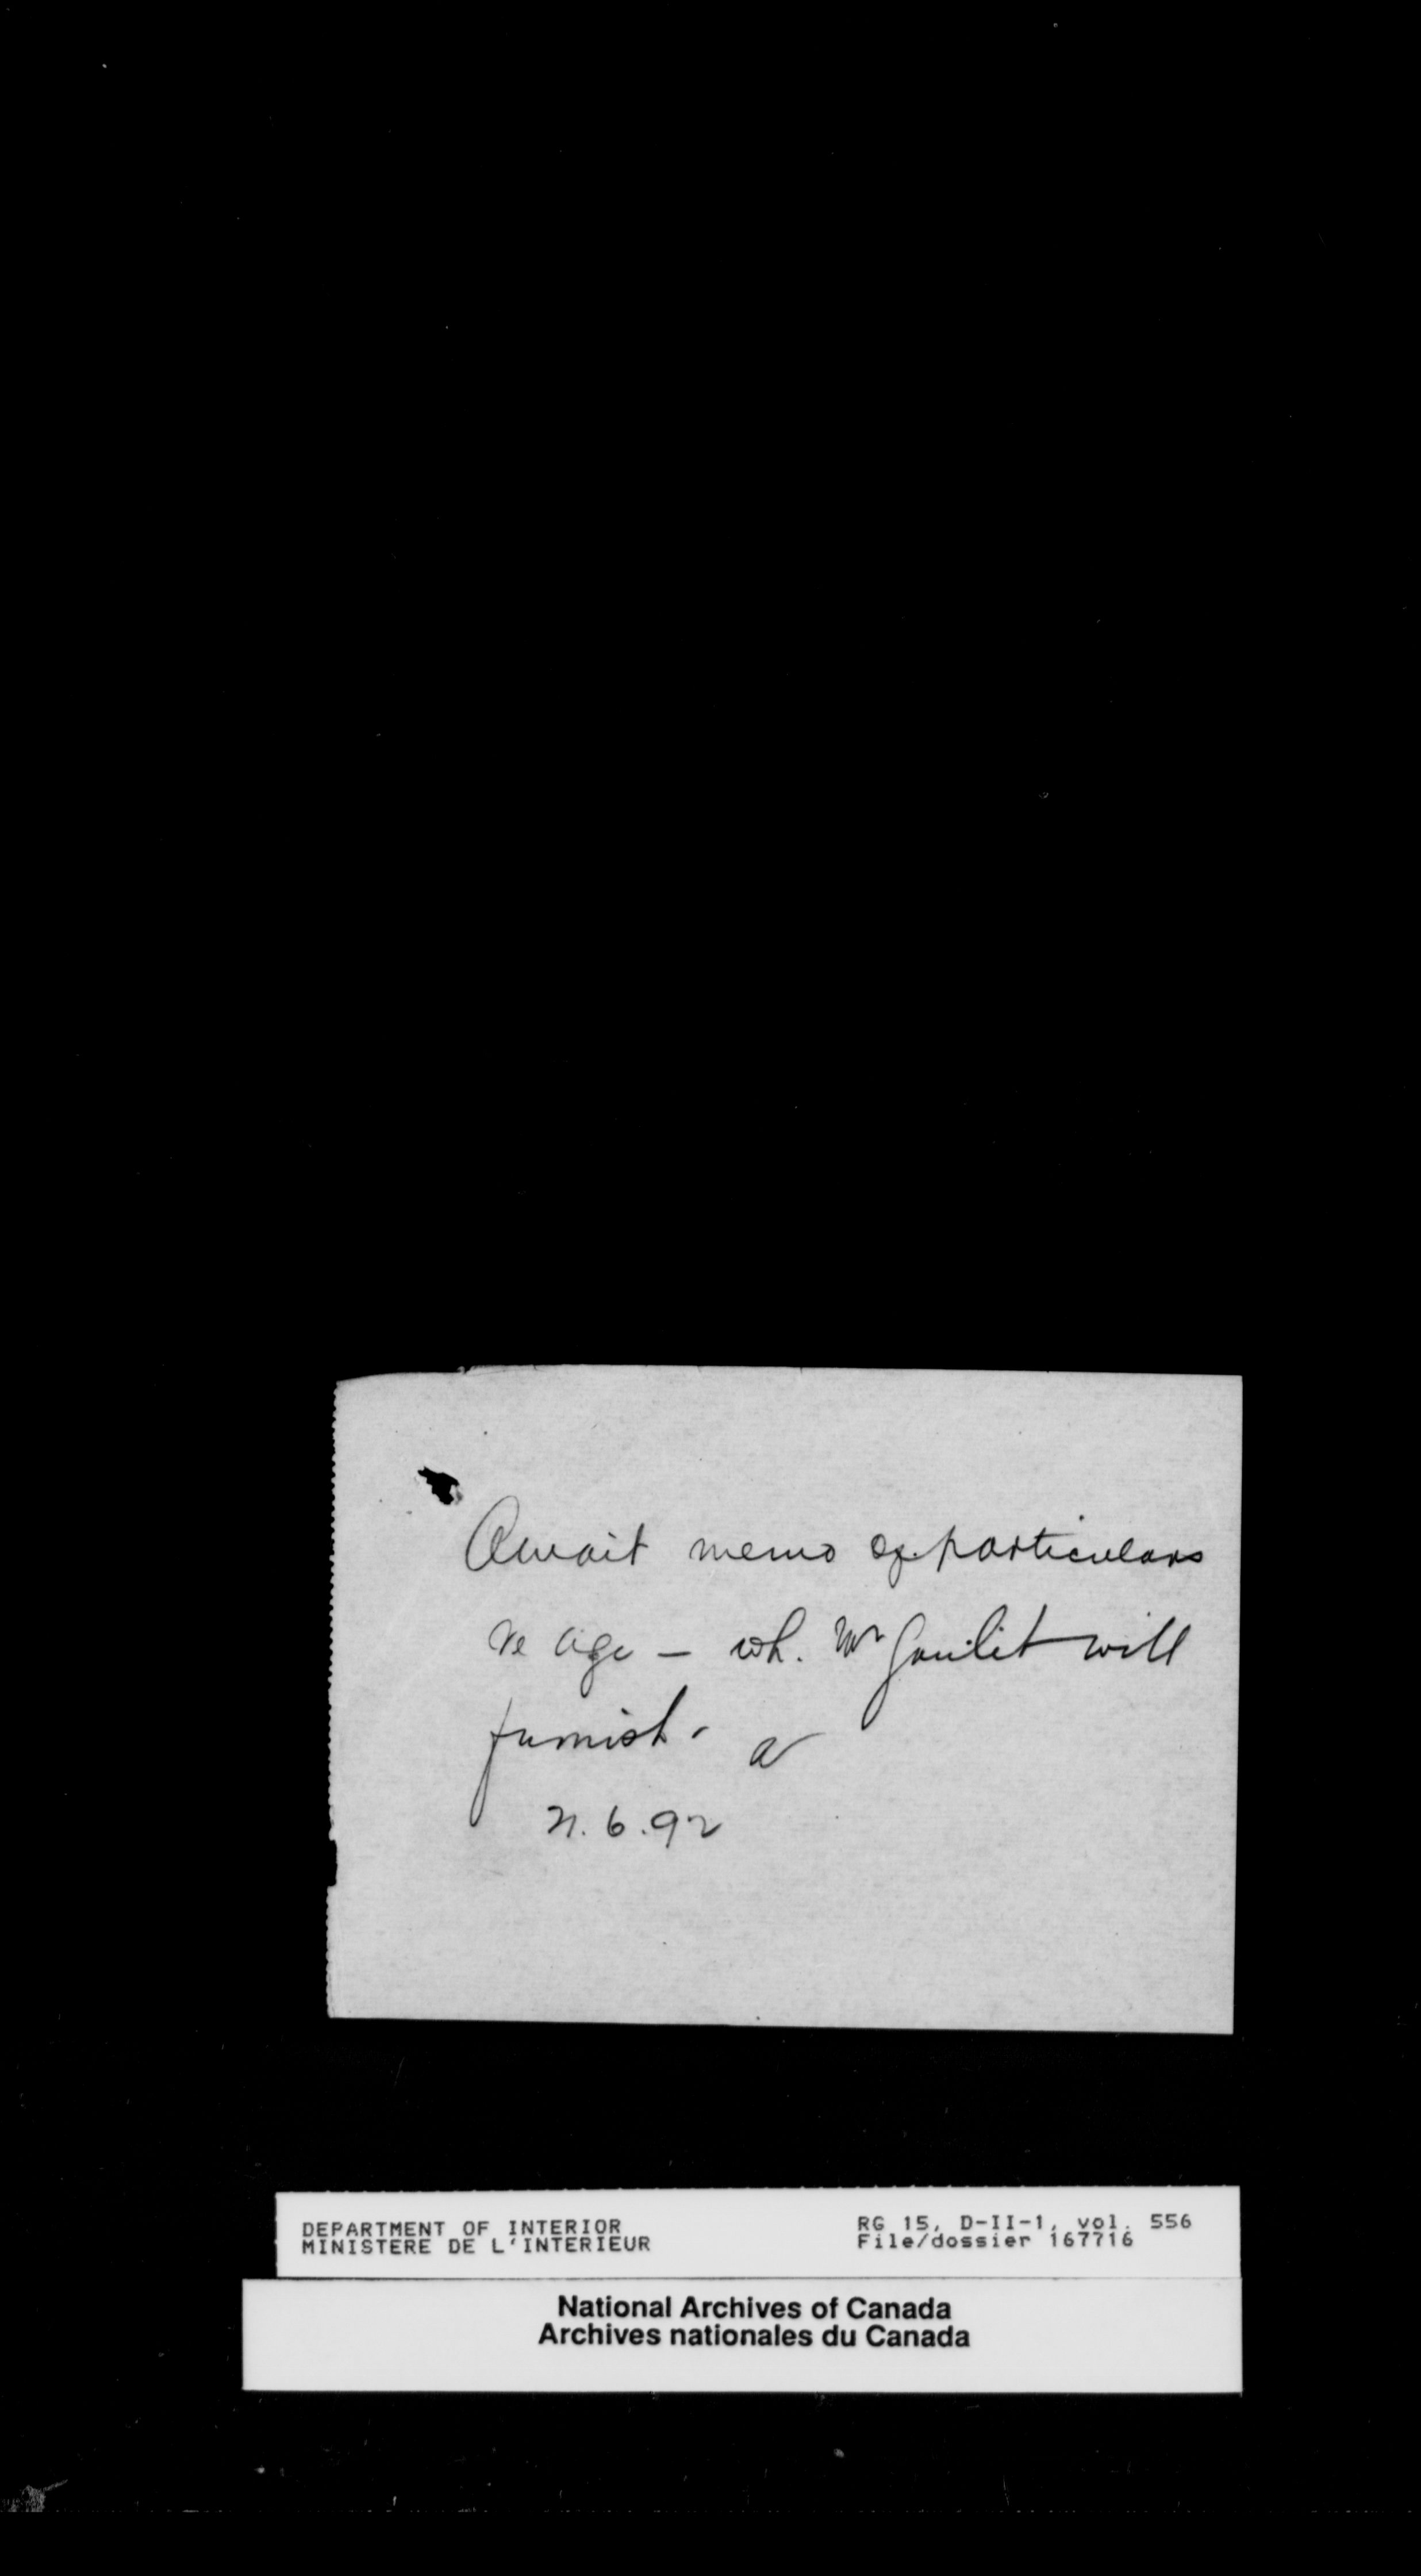 Await memo of particulars
re age – wh. Mr Goulet will
furnish.
21.6.92
DEPARTMENT OF INTERIOR
MINISTERE DE L'INTERIEUR
RG 15, D-II-1, vol. 556
File/dossier 167716
National Archives of Canada
Archives nationales du Canada